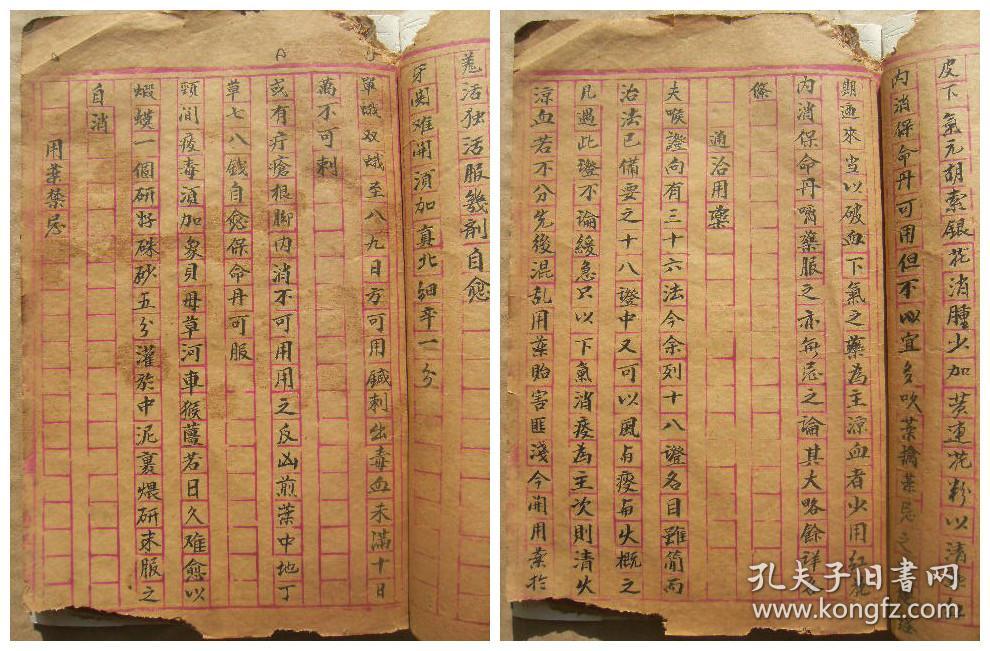 羗活独活服幾剤自愈
牙関难開湏加真北細辛一分
單蛾双蛾至八九日方可用鍼刺出毒血未滿十日
萬不可刺
或有疔瘡根脚内消不可用用之反凶煎葉中地丁
草七八錢自愈保命丹可服
頸间痰毒湏加象貝母草河車猴薑若日久难愈以
蝦蟆一個研好硃砂五分灌於中泥裏煨研末服之
自消
用葉禁忌
皮下氣元胡索銀花消腫少加黄連花粉以清
内消保命丹可用但不宜多吹葉擒葉忌之
來当以破血下氣之藥為主凉血者少用红花
内消保命丹噙藥服之亦每忌之論其大略餘詳
條
通治用藥
夫喉證向有三十六法今余列十八證名目雖简而
治法已備要之十八證中又可以風与痰与火概之
凡遇此證不論緩急只以下氣消痰為主次則清火
凉血若不分先後混乱用葉貽害匪淺今開用葉於
孔夫子旧书网
www.kongfz.com